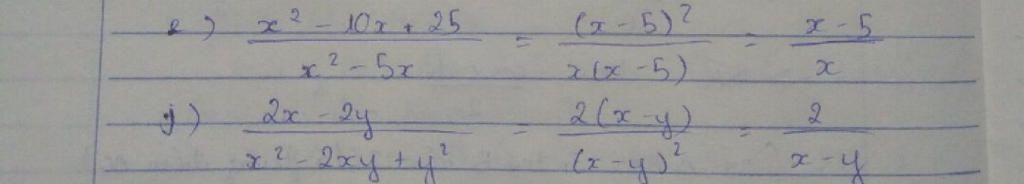 e) (x² - 10x + 25)/(x² - 5x) = (x - 5)²/(x(x - 5)) = (x - 5)/x
g) (2x - 2y)/(x² - 2xy + y²) = 2(x - y)/(x - y)² = 2/(x - y)